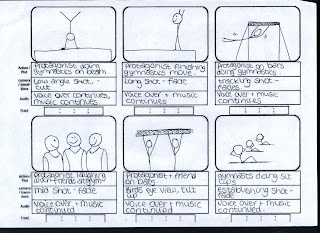 Action / Plot
Protagonist doing gymnastics on beam
Protagonist finishing gymnastics move
Protagonist on bars doing gymnastics
Low angle shot - cut
Long shot - fade
tracking shot - fades
Audio
Voice over continues, music continues
Voice over + music continues
Voice over + music continues
TIME
Protagonist laughing with friends at gym
Protagonist + friend on bars
Gymnasts doing sit ups
mid shot - fade
Birds eye view, tilt up
Establishing shot - fade
Audio
Voice over + music continued
Voice over + music continued
Voice over + music continued
TIME